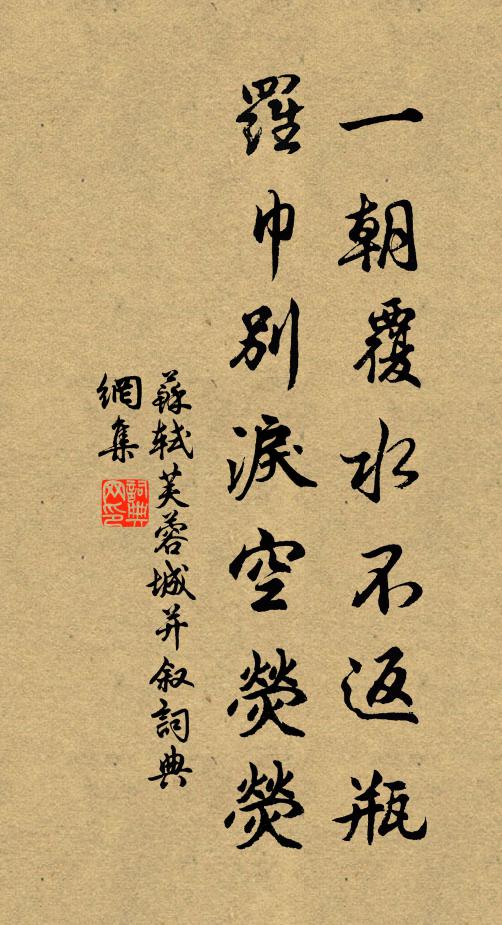 一朝覆水不返瓶
羅巾別淚空熒熒
蘇軾芙蓉城并叙詞典
網集
詞典
网印